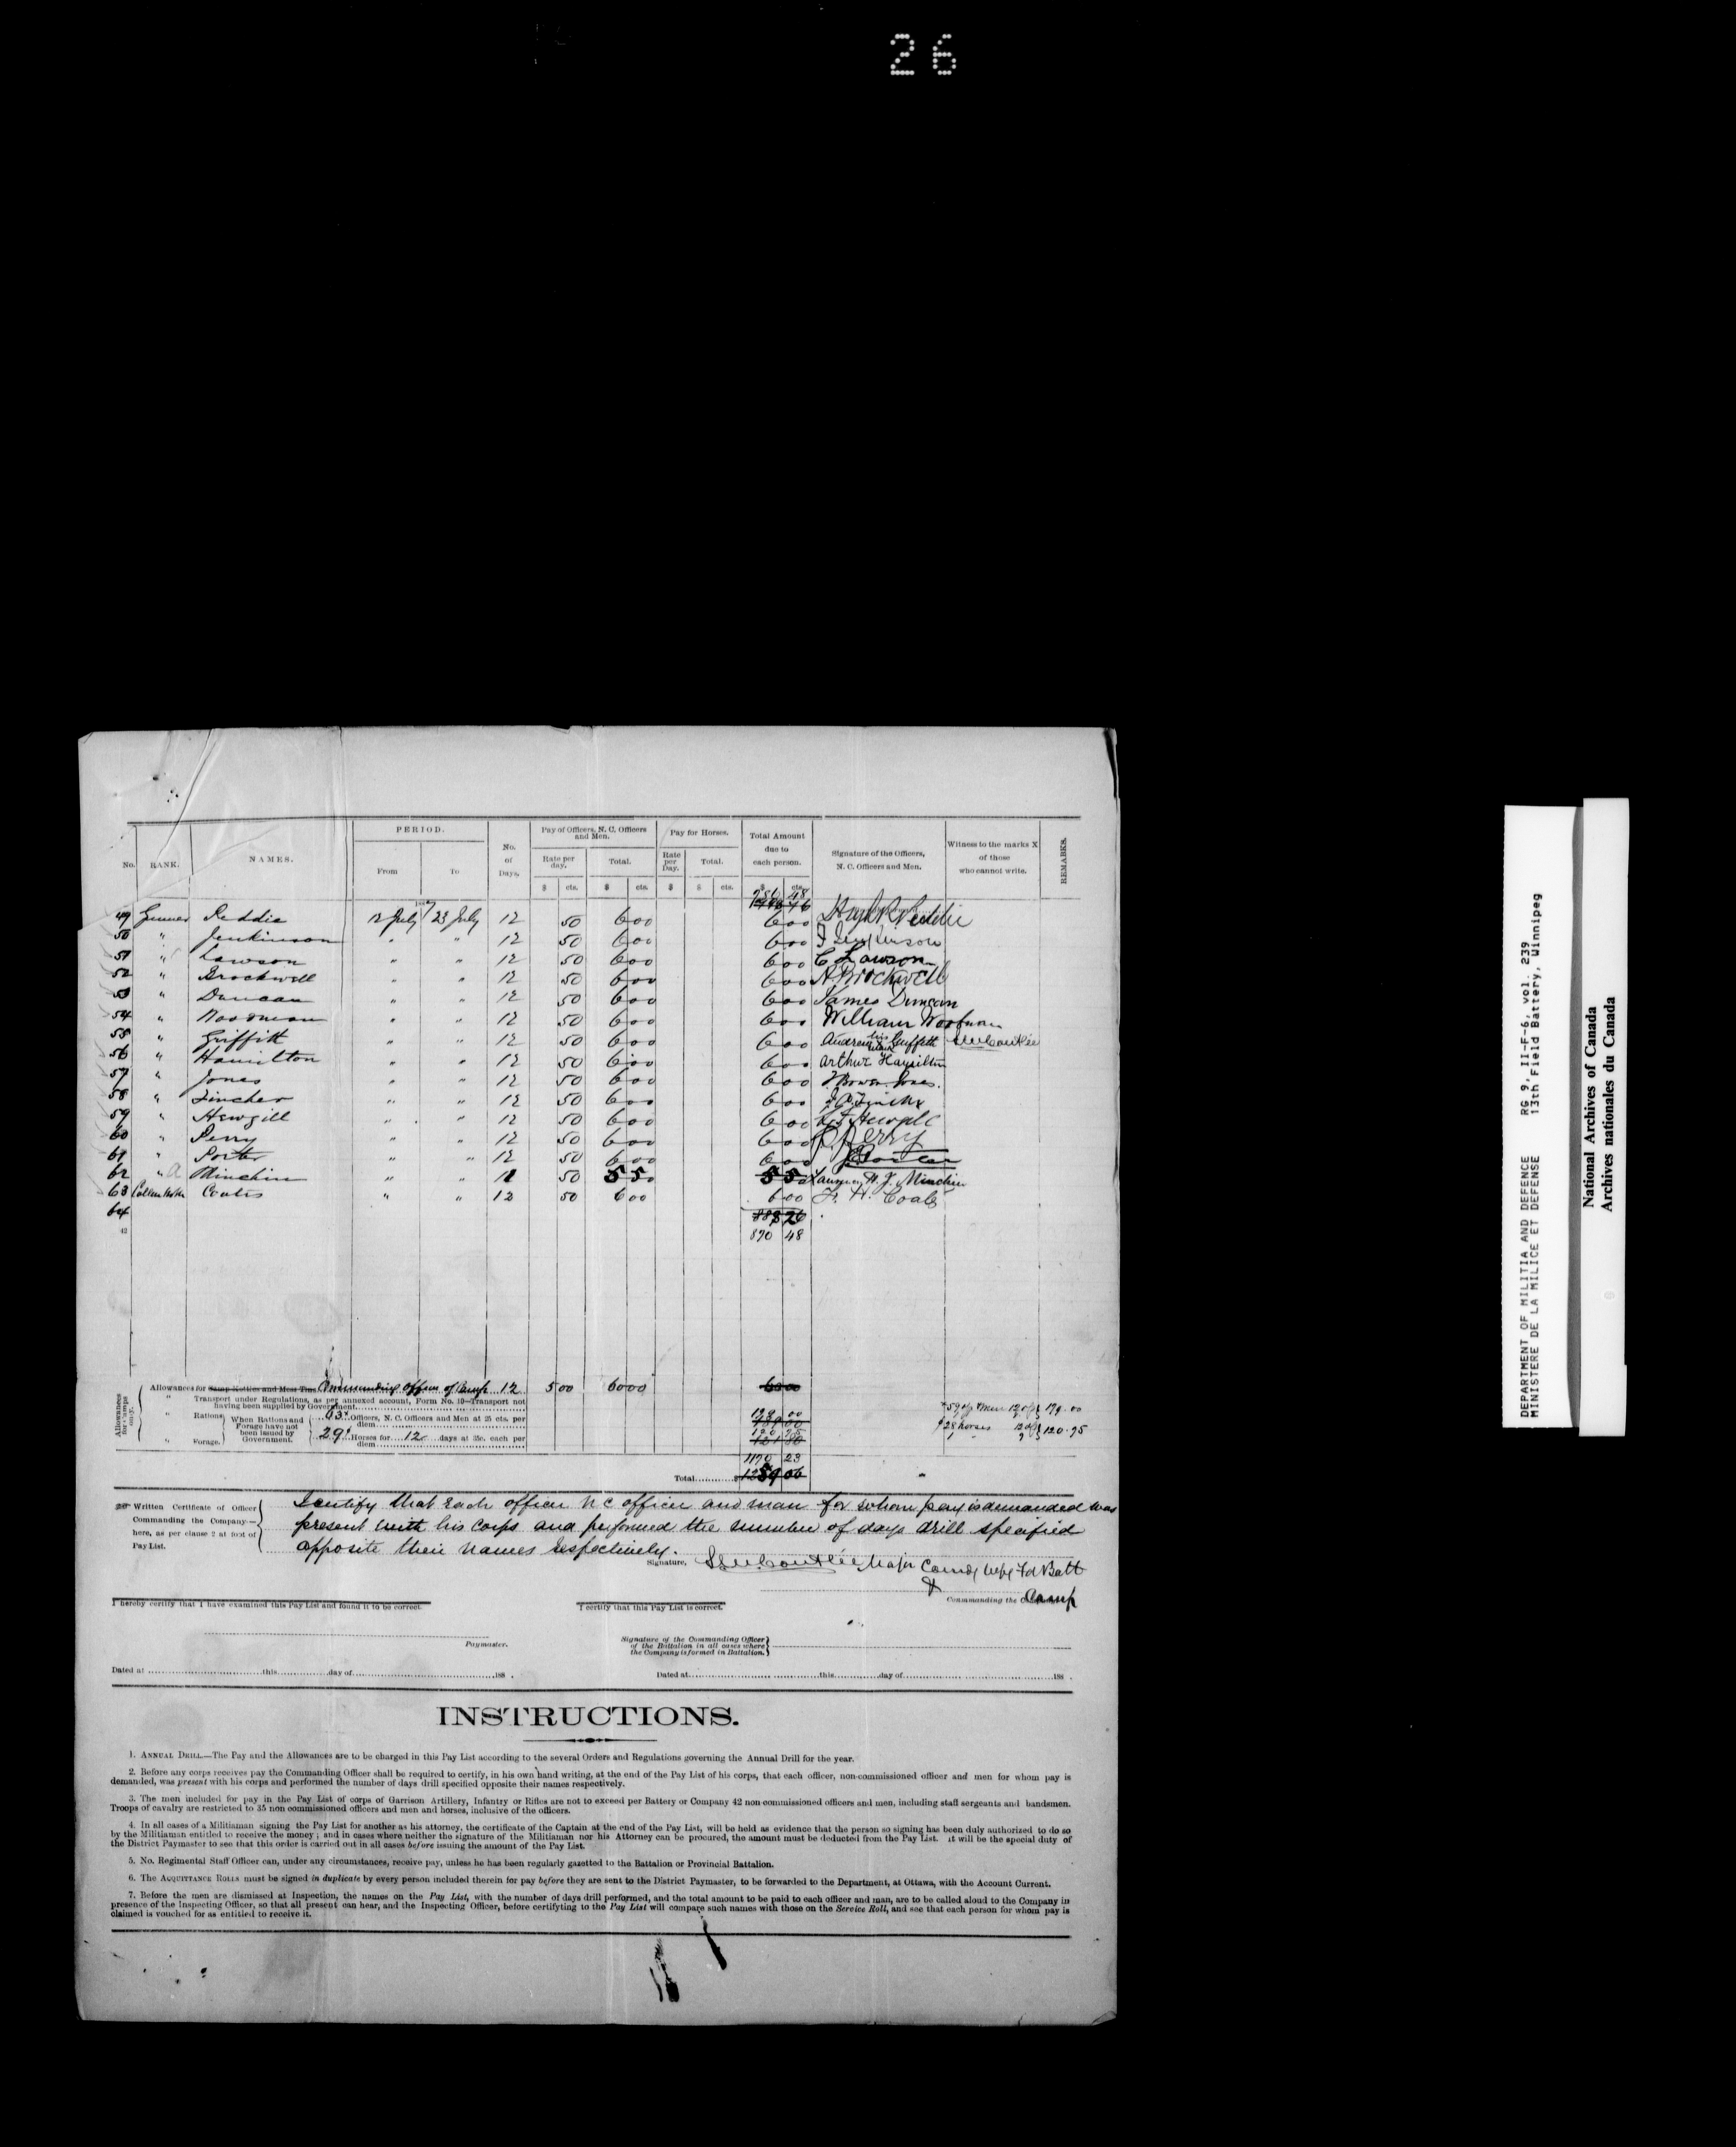 26
No. RANK. NAMES. PERIOD. From To No. of Days. Pay of Officers, N. C. Officers and Men. Rate per day. Total. Pay for Horses. Rate per Day. Total. Total Amount due to each person. Signature of the Officers, N. C. Officers and Men. Witness to the marks X of those who cannot write. REMARKS.
$ cts. $ cts. $ $ cts. $ cts.
1887
49 Gunner Peddie 12 July 23 July 12 50 6 00 6 00 Hugh R Peddie
50 " Jenkinson " " 12 50 6 00 6 00 Jenkinson
51 " Lawson " " 12 50 6 00 6 00 C Lawson
52 " Brockwell " " 12 50 6 00 6 00 A Brockwell
53 " Duncan " " 12 50 6 00 6 00 James Duncan
54 " Woodman " " 12 50 6 00 6 00 William Woodman
55 " Griffith " " 12 50 6 00 6 00 Andrew his X mark Griffith
56 " Hamilton " " 12 50 6 00 6 00 Arthur Hamilton
57 " Jones " " 12 50 6 00 6 00 Bowen Jones.
58 " Fincher " " 12 50 6 00 6 00
59 " Hewgill " " 12 50 6 00 6 00 Hewgill
60 " Perry " " 12 50 6 00 6 00 Perry
61 " Porter " " 12 50 6 00 6 00 Porter
62 " Minchin " " 11 50 5 50 5 50 H. J. Minchin
63 Coates " " 12 50 6 00 6 00 F. H. Coates
64
42
870 48
Allowances for Camps only.
Allowances for Camp Kettles and Mess Tins Commanding officer of Camp 12 5 00 60 00 60 00
" Transport under Regulations, as per annexed account, Form No. 10—Transport not having been supplied by Government
" Rations When Rations and Forage have not been issued by Government. 63 Officers, N. C. Officers and Men at 25 cts. per diem
" Forage. 29 Horses for 12 days at 35c. each per diem
28 horses 120.75
1170 23
Total $
Written Certificate of Officer Commanding the Company—here, as per clause 2 at foot of Pay List.
I certify that each officer N C officer and man for whom pay is demanded was
present with his corps and performed the number of days drill specified
opposite their names respectively.
Signature, Major Comdg Wpg Fd Batt
& Camp
Commanding the
I hereby certify that I have examined this Pay List and found it to be correct.
I certify that this Pay List is correct.
Paymaster.
Signature of the Commanding Officer of the Battalion in all cases where the Company is formed in Battalion.
Dated at this day of 188 .
Dated at this day of 188 .
INSTRUCTIONS.
1. ANNUAL DRILL—The Pay and the Allowances are to be charged in this Pay List according to the several Orders and Regulations governing the Annual Drill for the year.
2. Before any corps receives pay the Commanding Officer shall be required to certify, in his own hand writing, at the end of the Pay List of his corps, that each officer, non-commissioned officer and men for whom pay is
demanded, was present with his corps and performed the number of days drill specified opposite their names respectively.
3. The men included for pay in the Pay List of corps of Garrison Artillery, Infantry or Rifles are not to exceed per Battery or Company 42 non commissioned officers and men, including staff sergeants and bandsmen.
Troops of cavalry are restricted to 35 non commissioned officers and men and horses, inclusive of the officers.
4. In all cases of a Militiaman signing the Pay List for another as his attorney, the certificate of the Captain at the end of the Pay List, will be held as evidence that the person so signing has been duly authorized to do so
by the Militiaman entitled to receive the money ; and in cases where neither the signature of the Militiaman nor his Attorney can be procured, the amount must be deducted from the Pay List. It will be the special duty of
the District Paymaster to see that this order is carried out in all cases before issuing the amount of the Pay List.
5. No. Regimental Staff Officer can, under any circumstances, receive pay, unless he has been regularly gazetted to the Battalion or Provincial Battalion.
6. The ACQUITTANCE ROLLS must be signed in duplicate by every person included therein for pay before they are sent to the District Paymaster, to be forwarded to the Department, at Ottawa, with the Account Current.
7. Before the men are dismissed at Inspection, the names on the Pay List, with the number of days drill performed, and the total amount to be paid to each officer and man, are to be called aloud to the Company in
presence of the Inspecting Officer, so that all present can hear, and the Inspecting Officer, before certifying to the Pay List will compare such names with those on the Service Roll, and see that each person for whom pay is
claimed is vouched for as entitled to receive it.
DEPARTMENT OF MILITIA AND DEFENCE RG 9, II-F-6, vol. 239
MINISTERE DE LA MILICE ET DEFENSE 13th Field Battery, Winnipeg
National Archives of Canada
Archives nationales du Canada